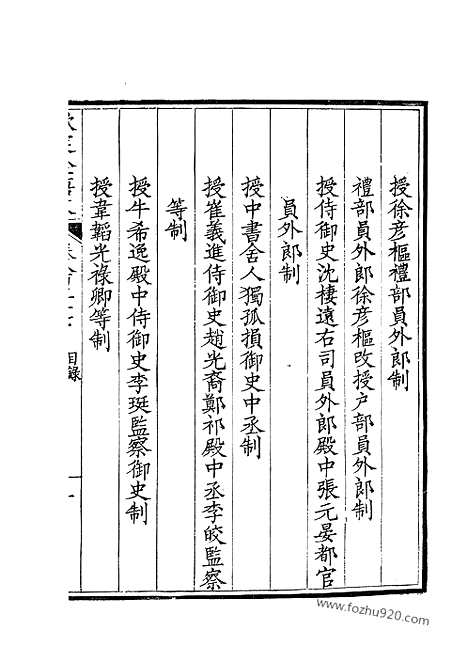 授徐彦樞禮部員外郎制
禮部員外郎徐彦樞改授户部員外郎制
授侍御史沈棲遠右司員外郎殿中張元晏都官
員外郎制
授中書舍人獨孤損御史中丞制
授崔義進侍御史趙光裔鄭祁殿中丞李皎監察
等制
授牛希逸殿中侍御史李珽監察御史制
授韋韜光祿卿等制
目錄
www.fozhu920.com